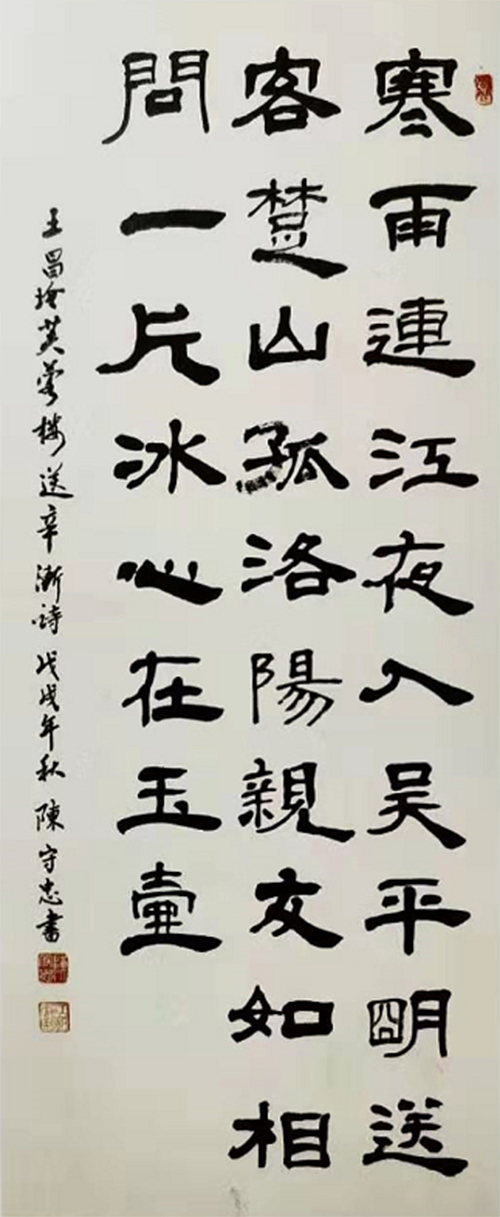 寒雨連江夜入吴平明送
客楚山孤洛陽親友如相
問一片冰心在玉壷
王昌齡芙蓉樓送辛漸詩戊戌年秋陳守忠書